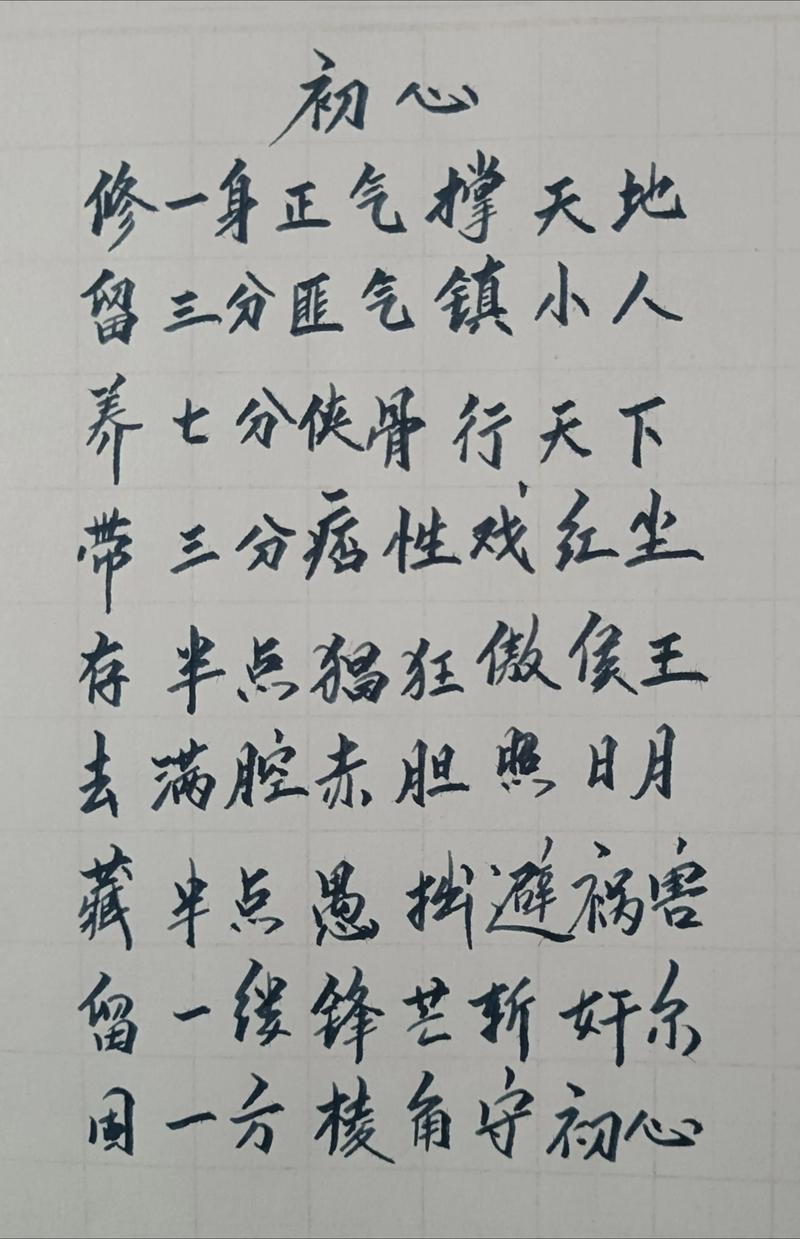 初心
修一身正气撑天地
留三分匪气镇小人
养七分侠骨行天下
带三分痞性戏红尘
存半点猖狂傲侯王
去满腔赤胆照日月
藏半点愚拙避祸害
留一缕锋芒斩奸尔
固一方棱角守初心